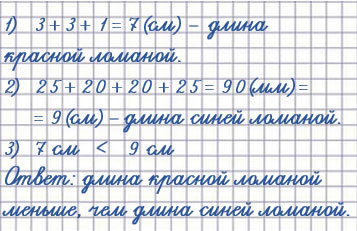 1) 3 + 3 + 1 = 7 (см) – длина
красной ломаной.
2) 25 + 20 + 20 + 25 = 90 (мм) =
= 9 (см) – длина синей ломаной.
3) 7 см < 9 см
Ответ: длина красной ломаной
меньше, чем длина синей ломаной.